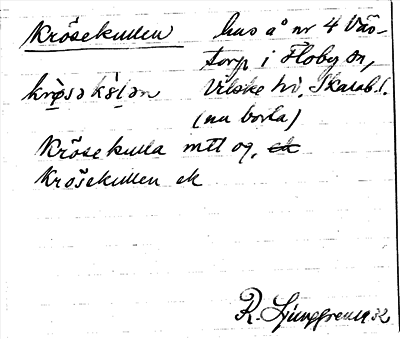 Krösekullen hus å nr 4 Väs-
torp i Floby sn,
Vilske hd, Skarab. l.
(nu borta)
Krösekulla mtl og. ek
Krösekullen ek
R. Ljunggren 32